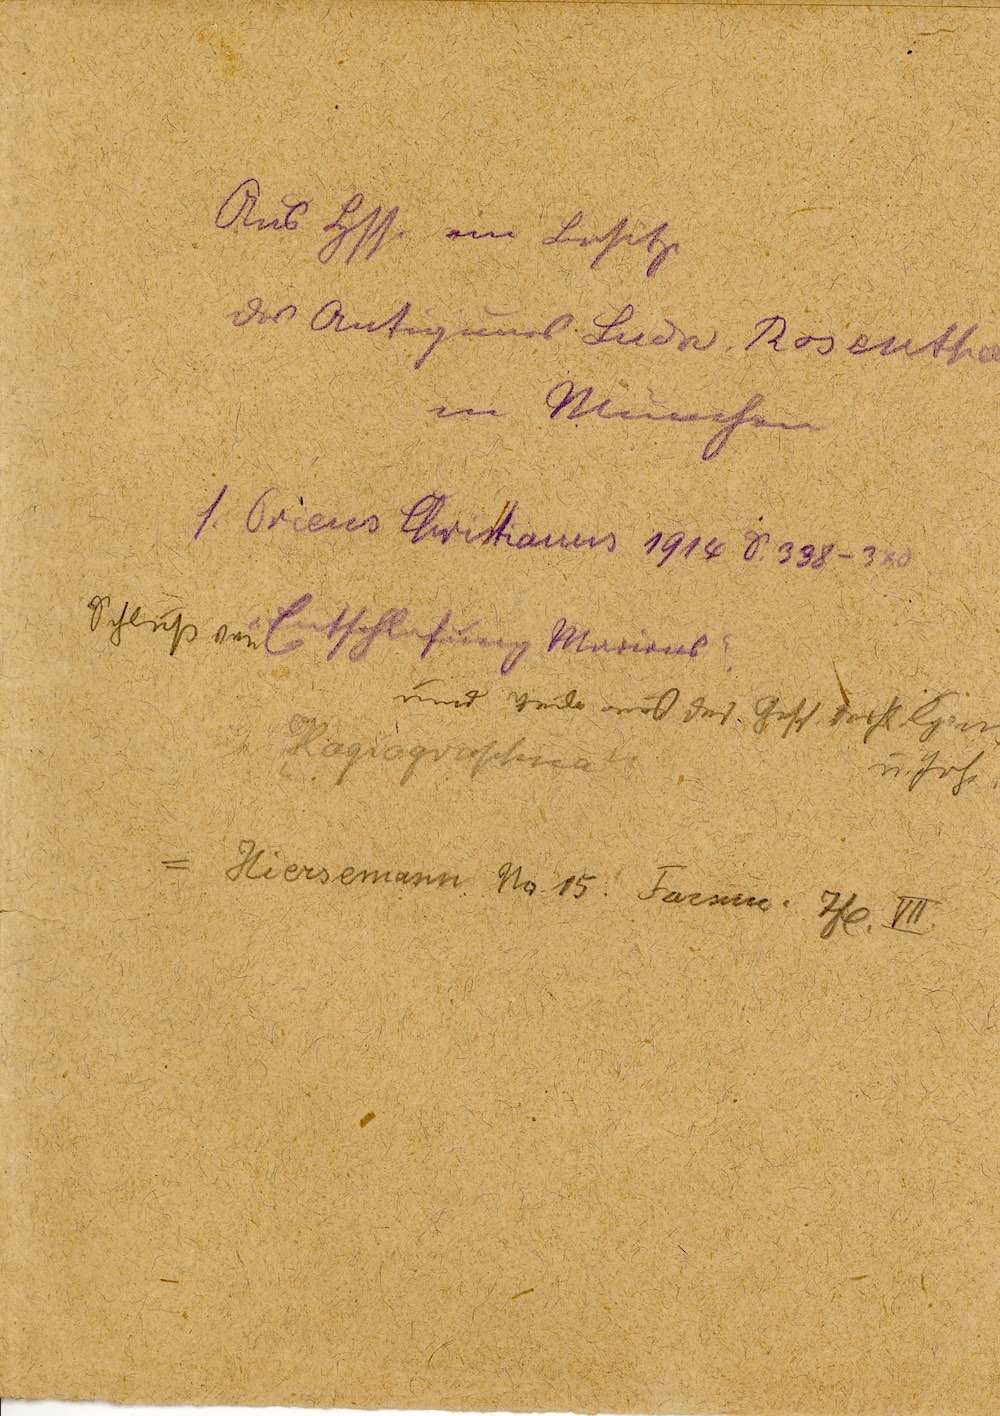 Aus Hss. im Besitz
des Antiquars Ludw. Rosentha
in München
s. Oriens Christianus 1914 S. 338-3
Schluß von „Entschlafung Mariens“
und aus der Gesch
u. Joh.
„Hagiographica“
= Hiersemann. No. 15. VII.